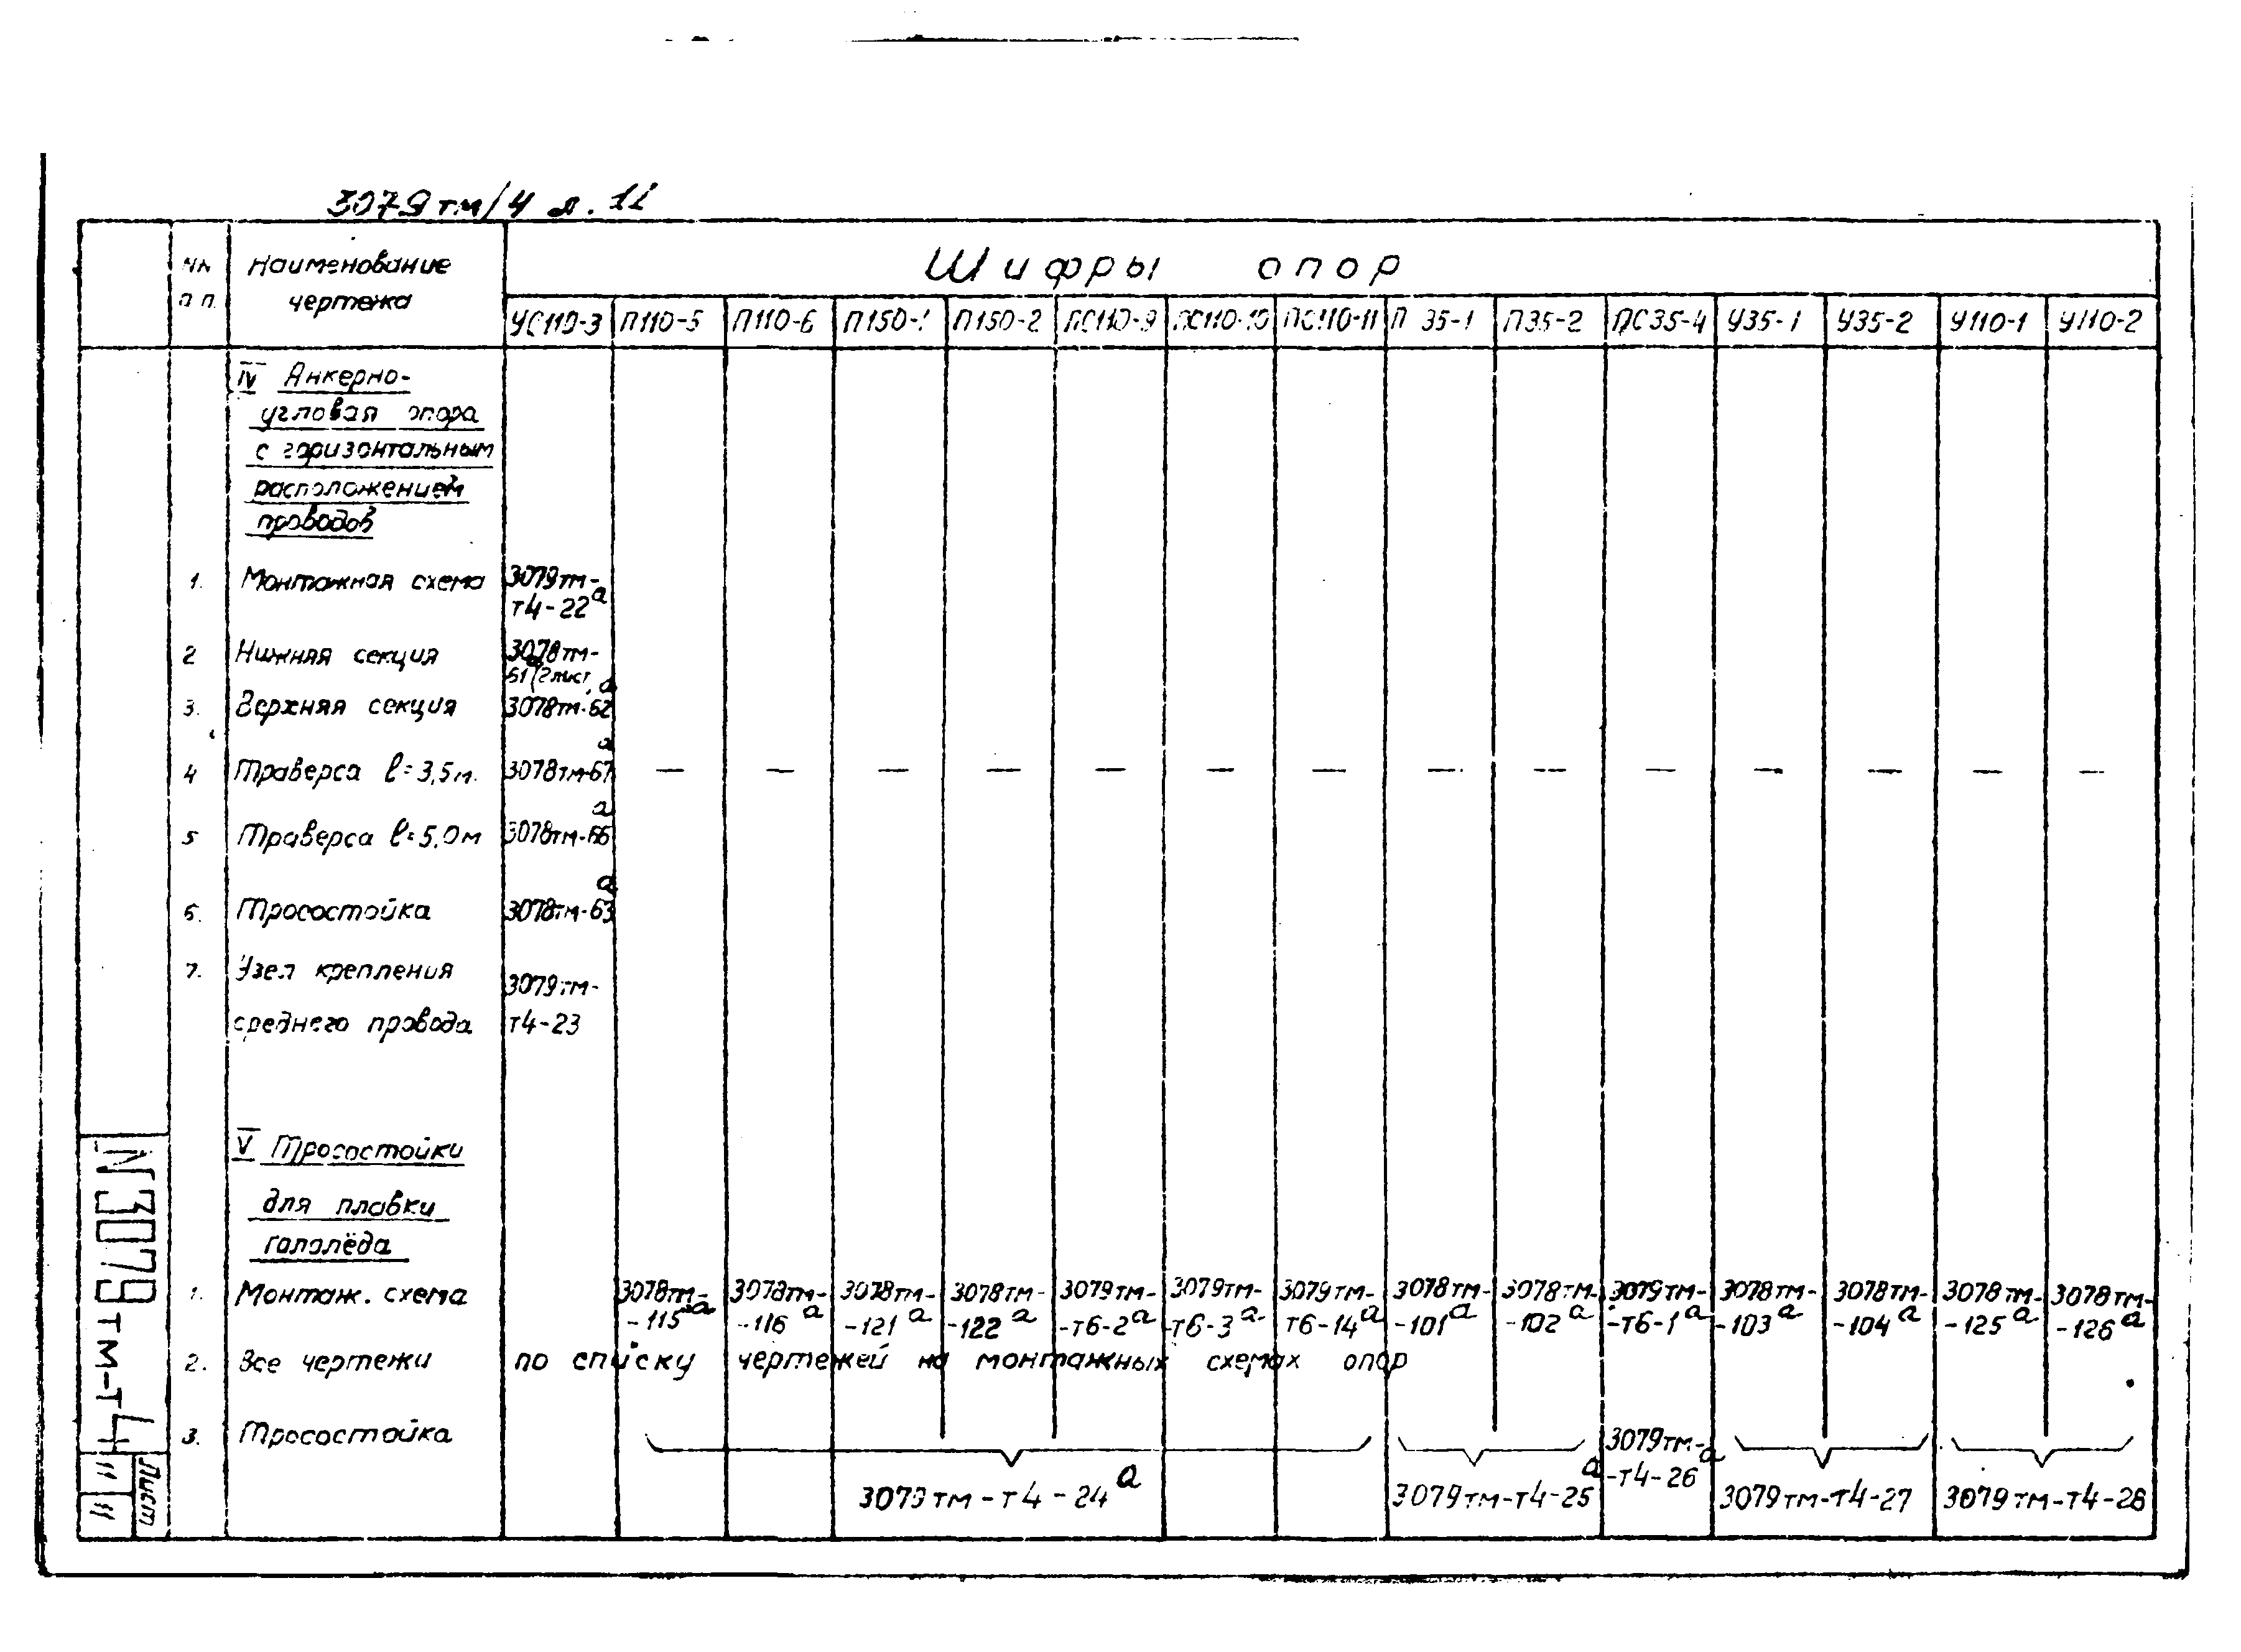 3079тм/4 л. 11
NN п.п.
Наименование чертежа
Шифры опор
УС110-3 П110-5 П110-6 П150-1 П150-2 ПС110-9 ПС110-10 ПС110-11 П 35-1 П35-2 ПС35-4 У35-1 У35-2 У110-1 У110-2
IV Анкерно-
угловая опора
с горизонтальным
расположением
проводов
1. Монтажная схема 3079тм-
т4-22а
2 Нижняя секция 3078тм-
61а/2лист
3. Верхняя секция 3078тм-62а
4 Траверса ℓ=3,5м. 3078тм-67а — — — — — — — — — — — — — —
5 Траверса ℓ=5,0м 3078тм-66а
6. Тросостойка 3078тм-63а
7. Узел крепления 3079тм-
среднего провода т4-23
V Тросостойки
для плавки
гололёда
1. Монтаж. схема 3078тм- 3078тм- 3078тм- 3078тм- 3079тм- 3079тм- 3079тм- 3078тм- 3078тм- 3079тм- 3078тм- 3078тм- 3078тм- 3078тм-
-115а -116а -121а -122а -т6-2а -т6-3а т6-14а -101а -102а -т6-1а -103а -104а -125а -126а
2. Все чертежи по списку чертежей на монтажных схемах опор
3. Тросостойка 3079тм-
-т4-26а
3079тм-т4-24а 3079тм-т4-25а 3079тм-т4-27 3079тм-т4-28
N3079тм-т4
Лист
11
11